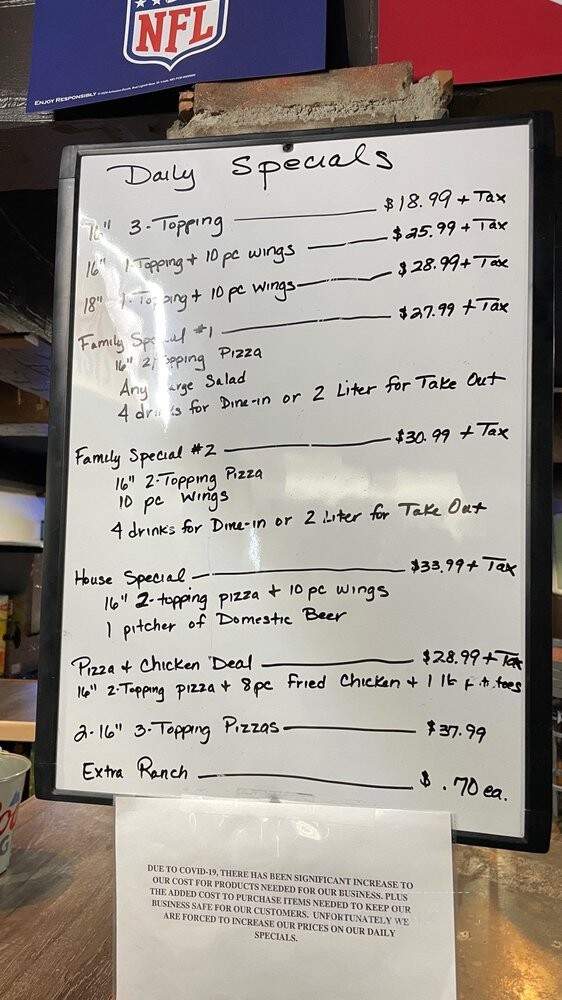 NFL
ENJOY RESPONSIBLY
Daily Specials
16" 3-Topping $18.99 + Tax
16" 1-Topping + 10 pc wings $25.99 + Tax
18" 1-Topping + 10 pc Wings $28.99 + Tax
Family Special #1 $27.99 + Tax
16" 2-Topping Pizza
Any Large Salad
4 drinks for Dine-in or 2 Liter for Take Out
Family Special #2 $30.99 + Tax
16" 2-Topping Pizza
10 pc Wings
4 drinks for Dine-in or 2 Liter for Take Out
House Special $33.99 + Tax
16" 2-topping pizza + 10 pc wings
1 pitcher of Domestic Beer
Pizza + Chicken Deal $28.99 + Tax
16" 2-Topping pizza + 8pc Fried Chicken + 1 lb
2-16" 3-Topping Pizzas $37.99
Extra Ranch $ .70 ea.
DUE TO COVID-19, THERE HAS BEEN SIGNIFICANT INCREASE TO
OUR COST FOR PRODUCTS NEEDED FOR OUR BUSINESS. PLUS
THE ADDED COST TO PURCHASE ITEMS NEEDED TO KEEP OUR
BUSINESS SAFE FOR OUR CUSTOMERS. UNFORTUNATELY WE
ARE FORCED TO INCREASE OUR PRICES ON OUR DAILY
SPECIALS.